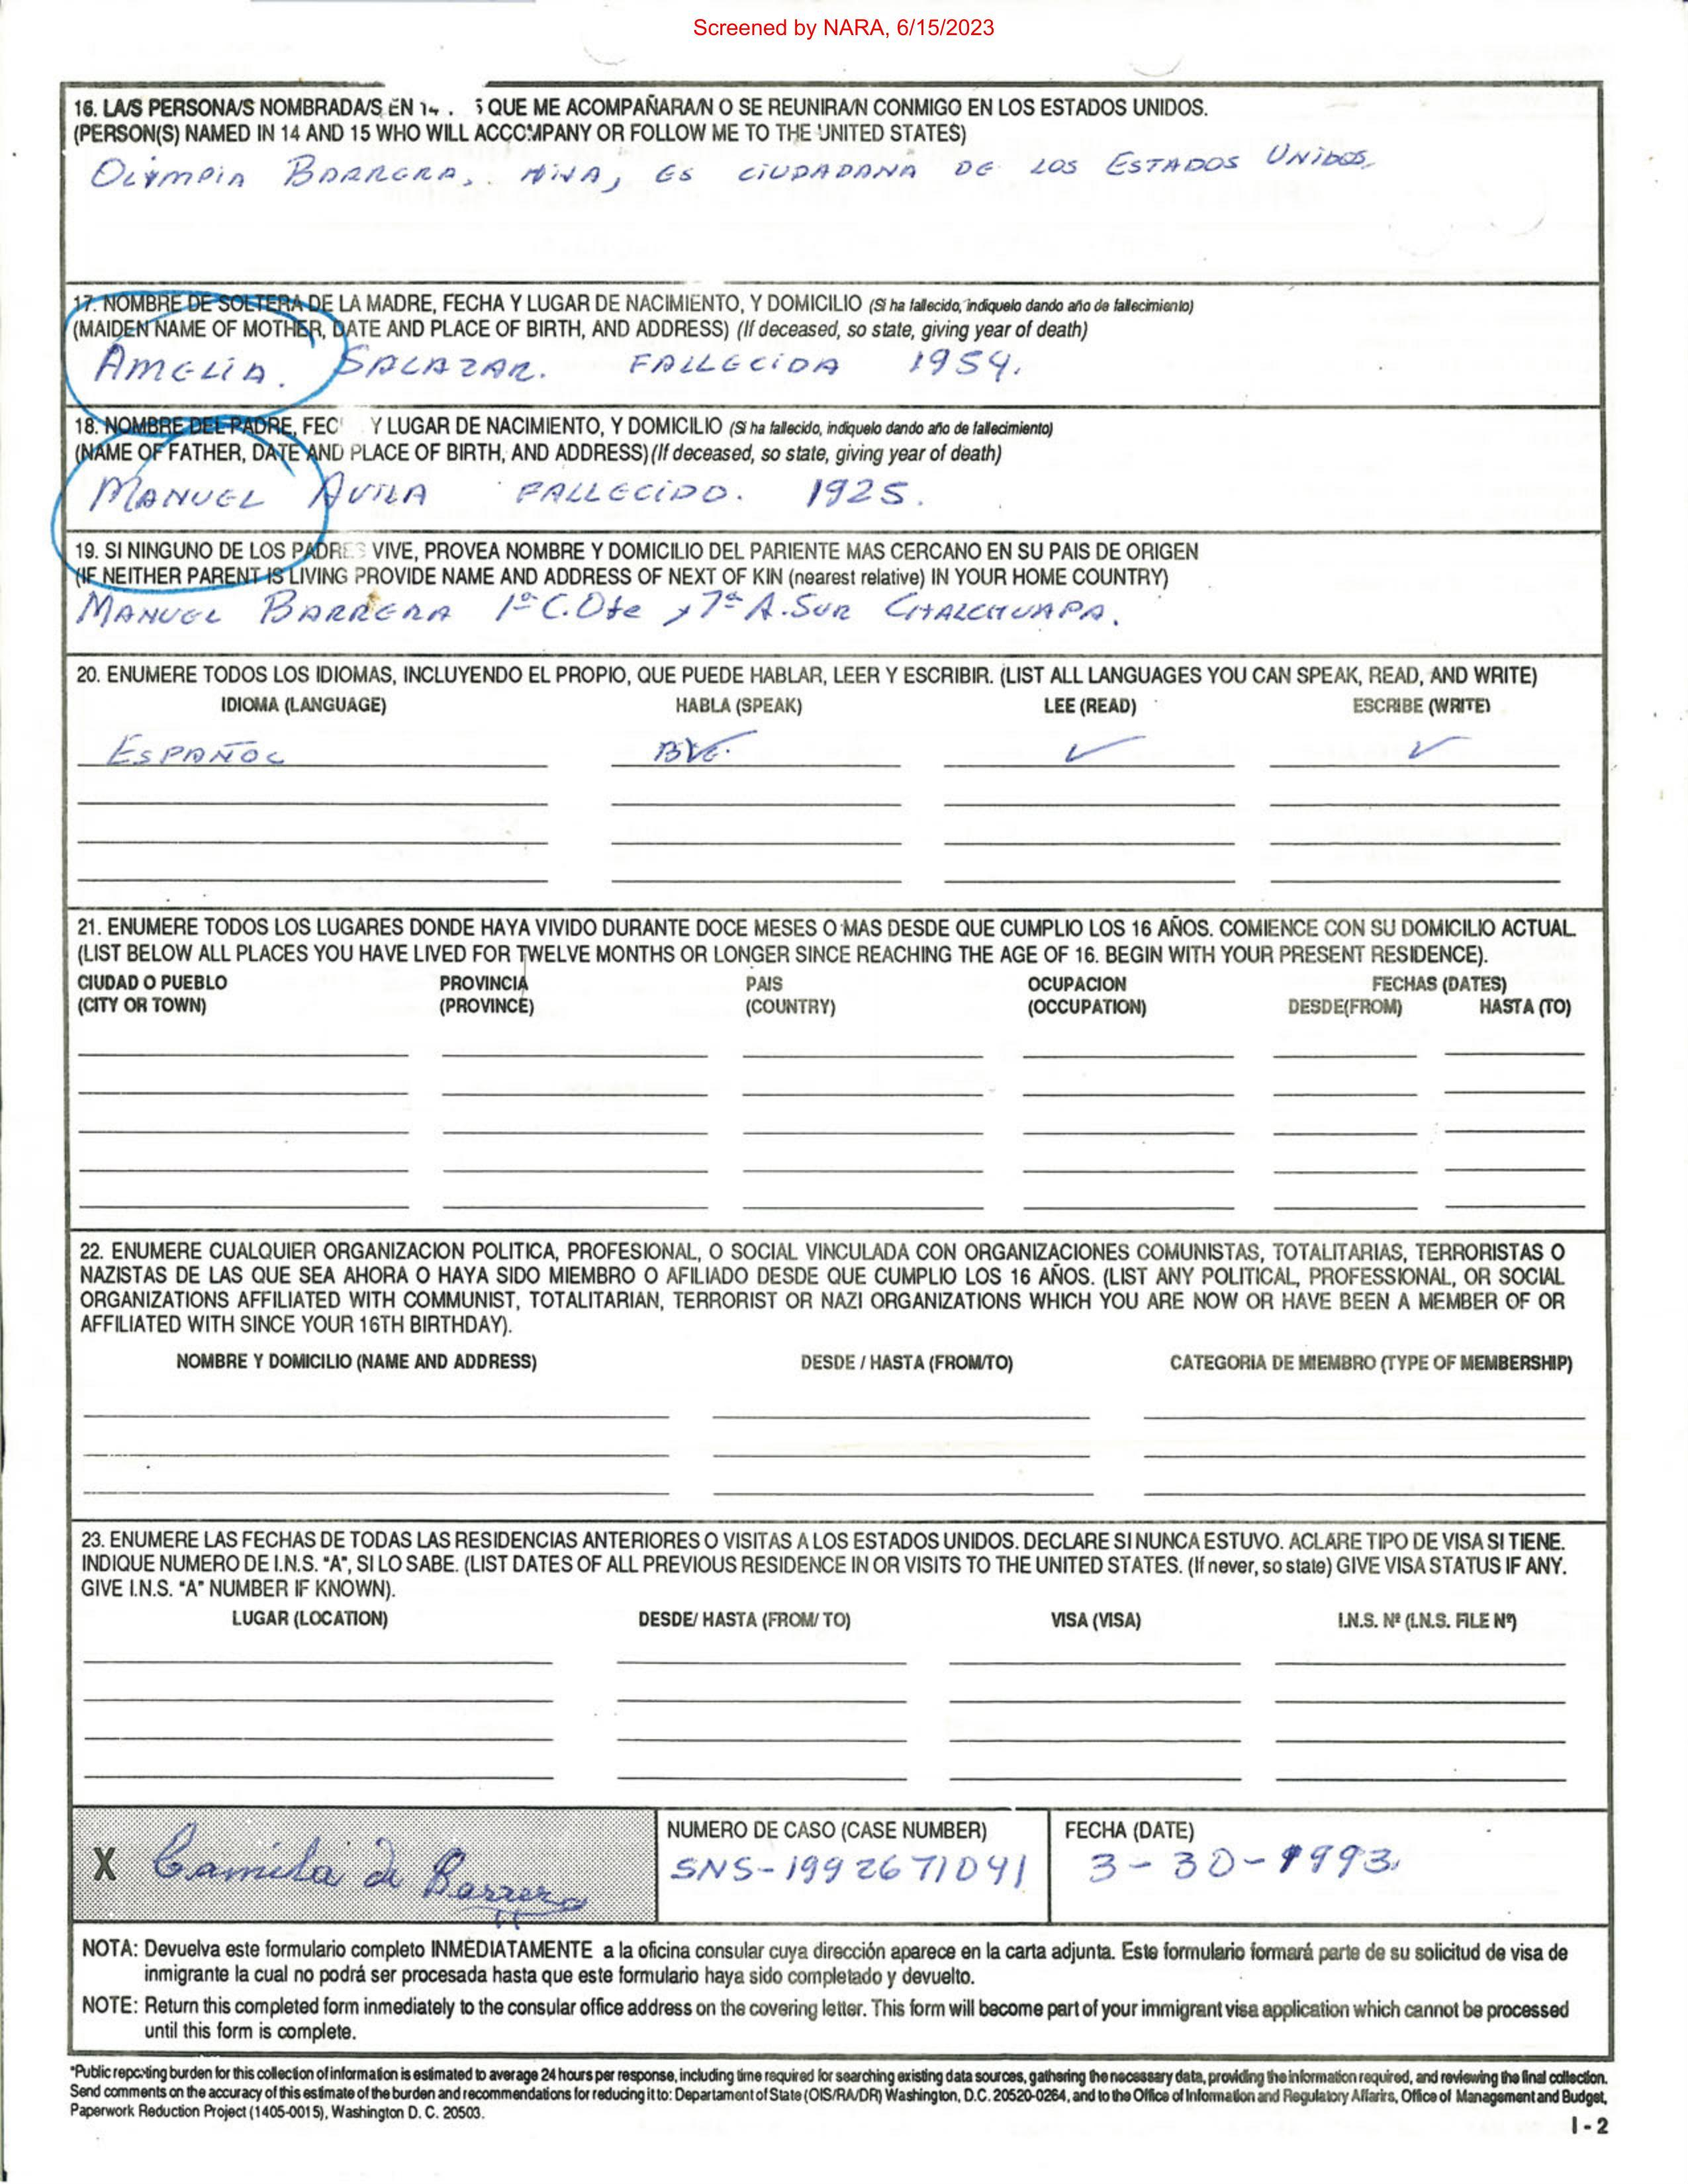 Screened by NARA, 6/15/2023
16. LA/S PERSONA/S NOMBRADA/S EN 14 . 5 QUE ME ACOMPAÑARA/N O SE REUNIRA/N CONMIGO EN LOS ESTADOS UNIDOS.
(PERSON(S) NAMED IN 14 AND 15 WHO WILL ACCOMPANY OR FOLLOW ME TO THE UNITED STATES)
OLYMPIA BARRERA, HIJA, ES CIUDADANA DE LOS ESTADOS UNIDOS,
17. NOMBRE DE SOLTERA DE LA MADRE, FECHA Y LUGAR DE NACIMIENTO, Y DOMICILIO (Si ha fallecido, indiquelo dando año de fallecimiento)
(MAIDEN NAME OF MOTHER, DATE AND PLACE OF BIRTH, AND ADDRESS) (If deceased, so state, giving year of death)
AMELIA. SALAZAR. FALLECIDA 1954.
18. NOMBRE DEL PADRE, FEC Y LUGAR DE NACIMIENTO, Y DOMICILIO (Si ha fallecido, indiquelo dando año de fallecimiento)
(NAME OF FATHER, DATE AND PLACE OF BIRTH, AND ADDRESS) (If deceased, so state, giving year of death)
MANUEL AVILA FALLECIDO. 1925.
19. SI NINGUNO DE LOS PADRES VIVE, PROVEA NOMBRE Y DOMICILIO DEL PARIENTE MAS CERCANO EN SU PAIS DE ORIGEN
(IF NEITHER PARENT IS LIVING PROVIDE NAME AND ADDRESS OF NEXT OF KIN (nearest relative) IN YOUR HOME COUNTRY)
MANUEL BARRERA 1ª C. Ote y 7ª A. SUR CHALCHUAPA.
20. ENUMERE TODOS LOS IDIOMAS, INCLUYENDO EL PROPIO, QUE PUEDE HABLAR, LEER Y ESCRIBIR. (LIST ALL LANGUAGES YOU CAN SPEAK, READ, AND WRITE)
IDIOMA (LANGUAGE) HABLA (SPEAK) LEE (READ) ESCRIBE (WRITE)
ESPAÑOL ✓ ✓
21. ENUMERE TODOS LOS LUGARES DONDE HAYA VIVIDO DURANTE DOCE MESES O MAS DESDE QUE CUMPLIO LOS 16 AÑOS. COMIENCE CON SU DOMICILIO ACTUAL.
(LIST BELOW ALL PLACES YOU HAVE LIVED FOR TWELVE MONTHS OR LONGER SINCE REACHING THE AGE OF 16. BEGIN WITH YOUR PRESENT RESIDENCE).
CIUDAD O PUEBLO PROVINCIA PAIS OCUPACION FECHAS (DATES)
(CITY OR TOWN) (PROVINCE) (COUNTRY) (OCCUPATION) DESDE(FROM) HASTA (TO)
22. ENUMERE CUALQUIER ORGANIZACION POLITICA, PROFESIONAL, O SOCIAL VINCULADA CON ORGANIZACIONES COMUNISTAS, TOTALITARIAS, TERRORISTAS O
NAZISTAS DE LAS QUE SEA AHORA O HAYA SIDO MIEMBRO O AFILIADO DESDE QUE CUMPLIO LOS 16 AÑOS. (LIST ANY POLITICAL, PROFESSIONAL, OR SOCIAL
ORGANIZATIONS AFFILIATED WITH COMMUNIST, TOTALITARIAN, TERRORIST OR NAZI ORGANIZATIONS WHICH YOU ARE NOW OR HAVE BEEN A MEMBER OF OR
AFFILIATED WITH SINCE YOUR 16TH BIRTHDAY).
NOMBRE Y DOMICILIO (NAME AND ADDRESS) DESDE / HASTA (FROM/TO) CATEGORIA DE MIEMBRO (TYPE OF MEMBERSHIP)
23. ENUMERE LAS FECHAS DE TODAS LAS RESIDENCIAS ANTERIORES O VISITAS A LOS ESTADOS UNIDOS. DECLARE SI NUNCA ESTUVO. ACLARE TIPO DE VISA SI TIENE.
INDIQUE NUMERO DE I.N.S. "A", SI LO SABE. (LIST DATES OF ALL PREVIOUS RESIDENCE IN OR VISITS TO THE UNITED STATES. (If never, so state) GIVE VISA STATUS IF ANY.
GIVE I.N.S. "A" NUMBER IF KNOWN).
LUGAR (LOCATION) DESDE/ HASTA (FROM/ TO) VISA (VISA) I.N.S. Nº (I.N.S. FILE Nº)
X Camila de Barrera
NUMERO DE CASO (CASE NUMBER) FECHA (DATE)
SNS-1992671041 3-30-1993.
NOTA: Devuelva este formulario completo INMEDIATAMENTE a la oficina consular cuya dirección aparece en la carta adjunta. Este formulario formará parte de su solicitud de visa de
inmigrante la cual no podrá ser procesada hasta que este formulario haya sido completado y devuelto.
NOTE: Return this completed form inmediately to the consular office address on the covering letter. This form will become part of your immigrant visa application which cannot be processed
until this form is complete.
*Public reporting burden for this collection of information is estimated to average 24 hours per response, including time required for searching existing data sources, gathering the necessary data, providing the information required, and reviewing the final collection.
Send comments on the accuracy of this estimate of the burden and recommendations for reducing it to: Departament of State (OIS/RA/DR) Washington, D.C. 20520-0264, and to the Office of Information and Regulatory Affarirs, Office of Management and Budget,
Paperwork Reduction Project (1405-0015), Washington D. C. 20503.
I - 2